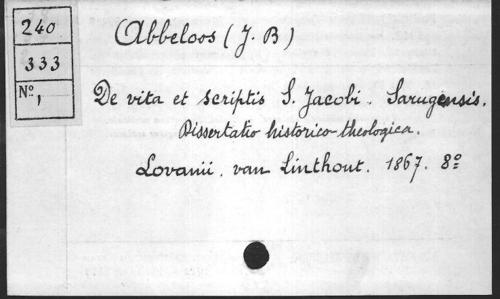 240
333
Nº 1
Abbeloos (J. B)
De vita et scriptis S. Jacobi. Sarugensis.
Dissertatio historico-theologica.
Lovanii. van Linthout. 1867. 8º